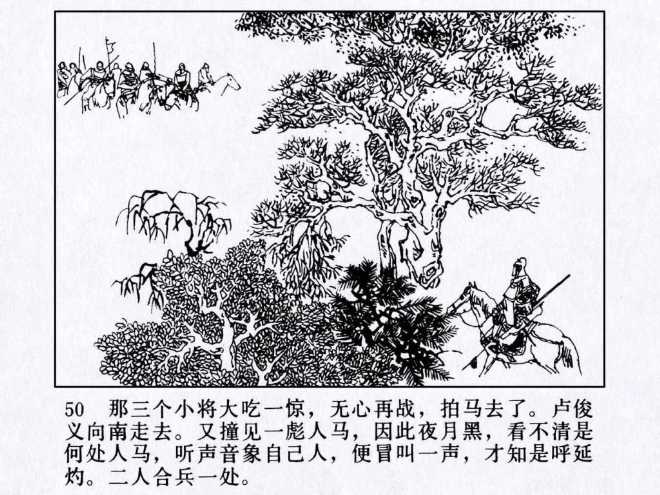 50 那三个小将大吃一惊，无心再战，拍马去了。卢俊
义向南走去。又撞见一彪人马，因此夜月黑，看不清是
何处人马，听声音象自己人，便冒叫一声，才知是呼延
灼。二人合兵一处。